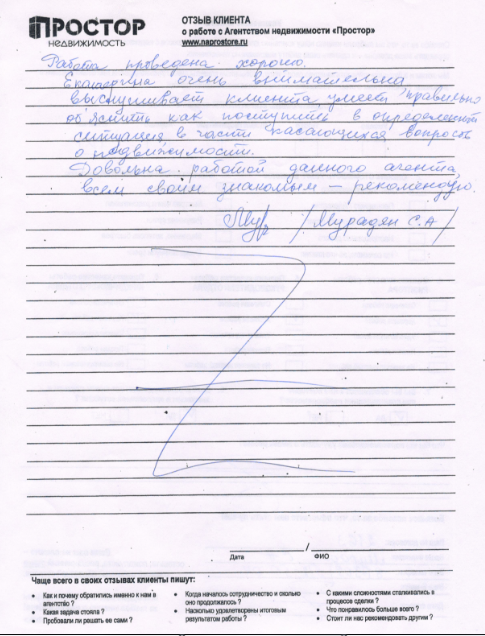 ПРОСТОР
НЕДВИЖИМОСТЬ
ОТЗЫВ КЛИЕНТА
о работе с Агентством недвижимости «Простор»
www.naprostore.ru
Работа проведена хорошо.
Екатерина очень внимательна
выслушивает клиента умеет правильно
объяснить как поступить в определенной
ситуация в части касающихся вопросов
о недвижимости.
Довольна работой данного агента,
всем своим знакомым — рекомендую.
/Мурадян С.А/
Дата / ФИО
Чаще всего в своих отзывах клиенты пишут:
• Как и почему обратились именно к нам в агентство ?
• Какая задача стояла ?
• Пробовали ли решать ее сами ?
• Когда началось сотрудничество и сколько оно продолжалось ?
• Насколько удовлетворены итоговым результатом работы ?
• С какими сложностями сталкивались в процессе сделки ?
• Что понравилось больше всего ?
• Стоит ли нас рекомендовать другим ?